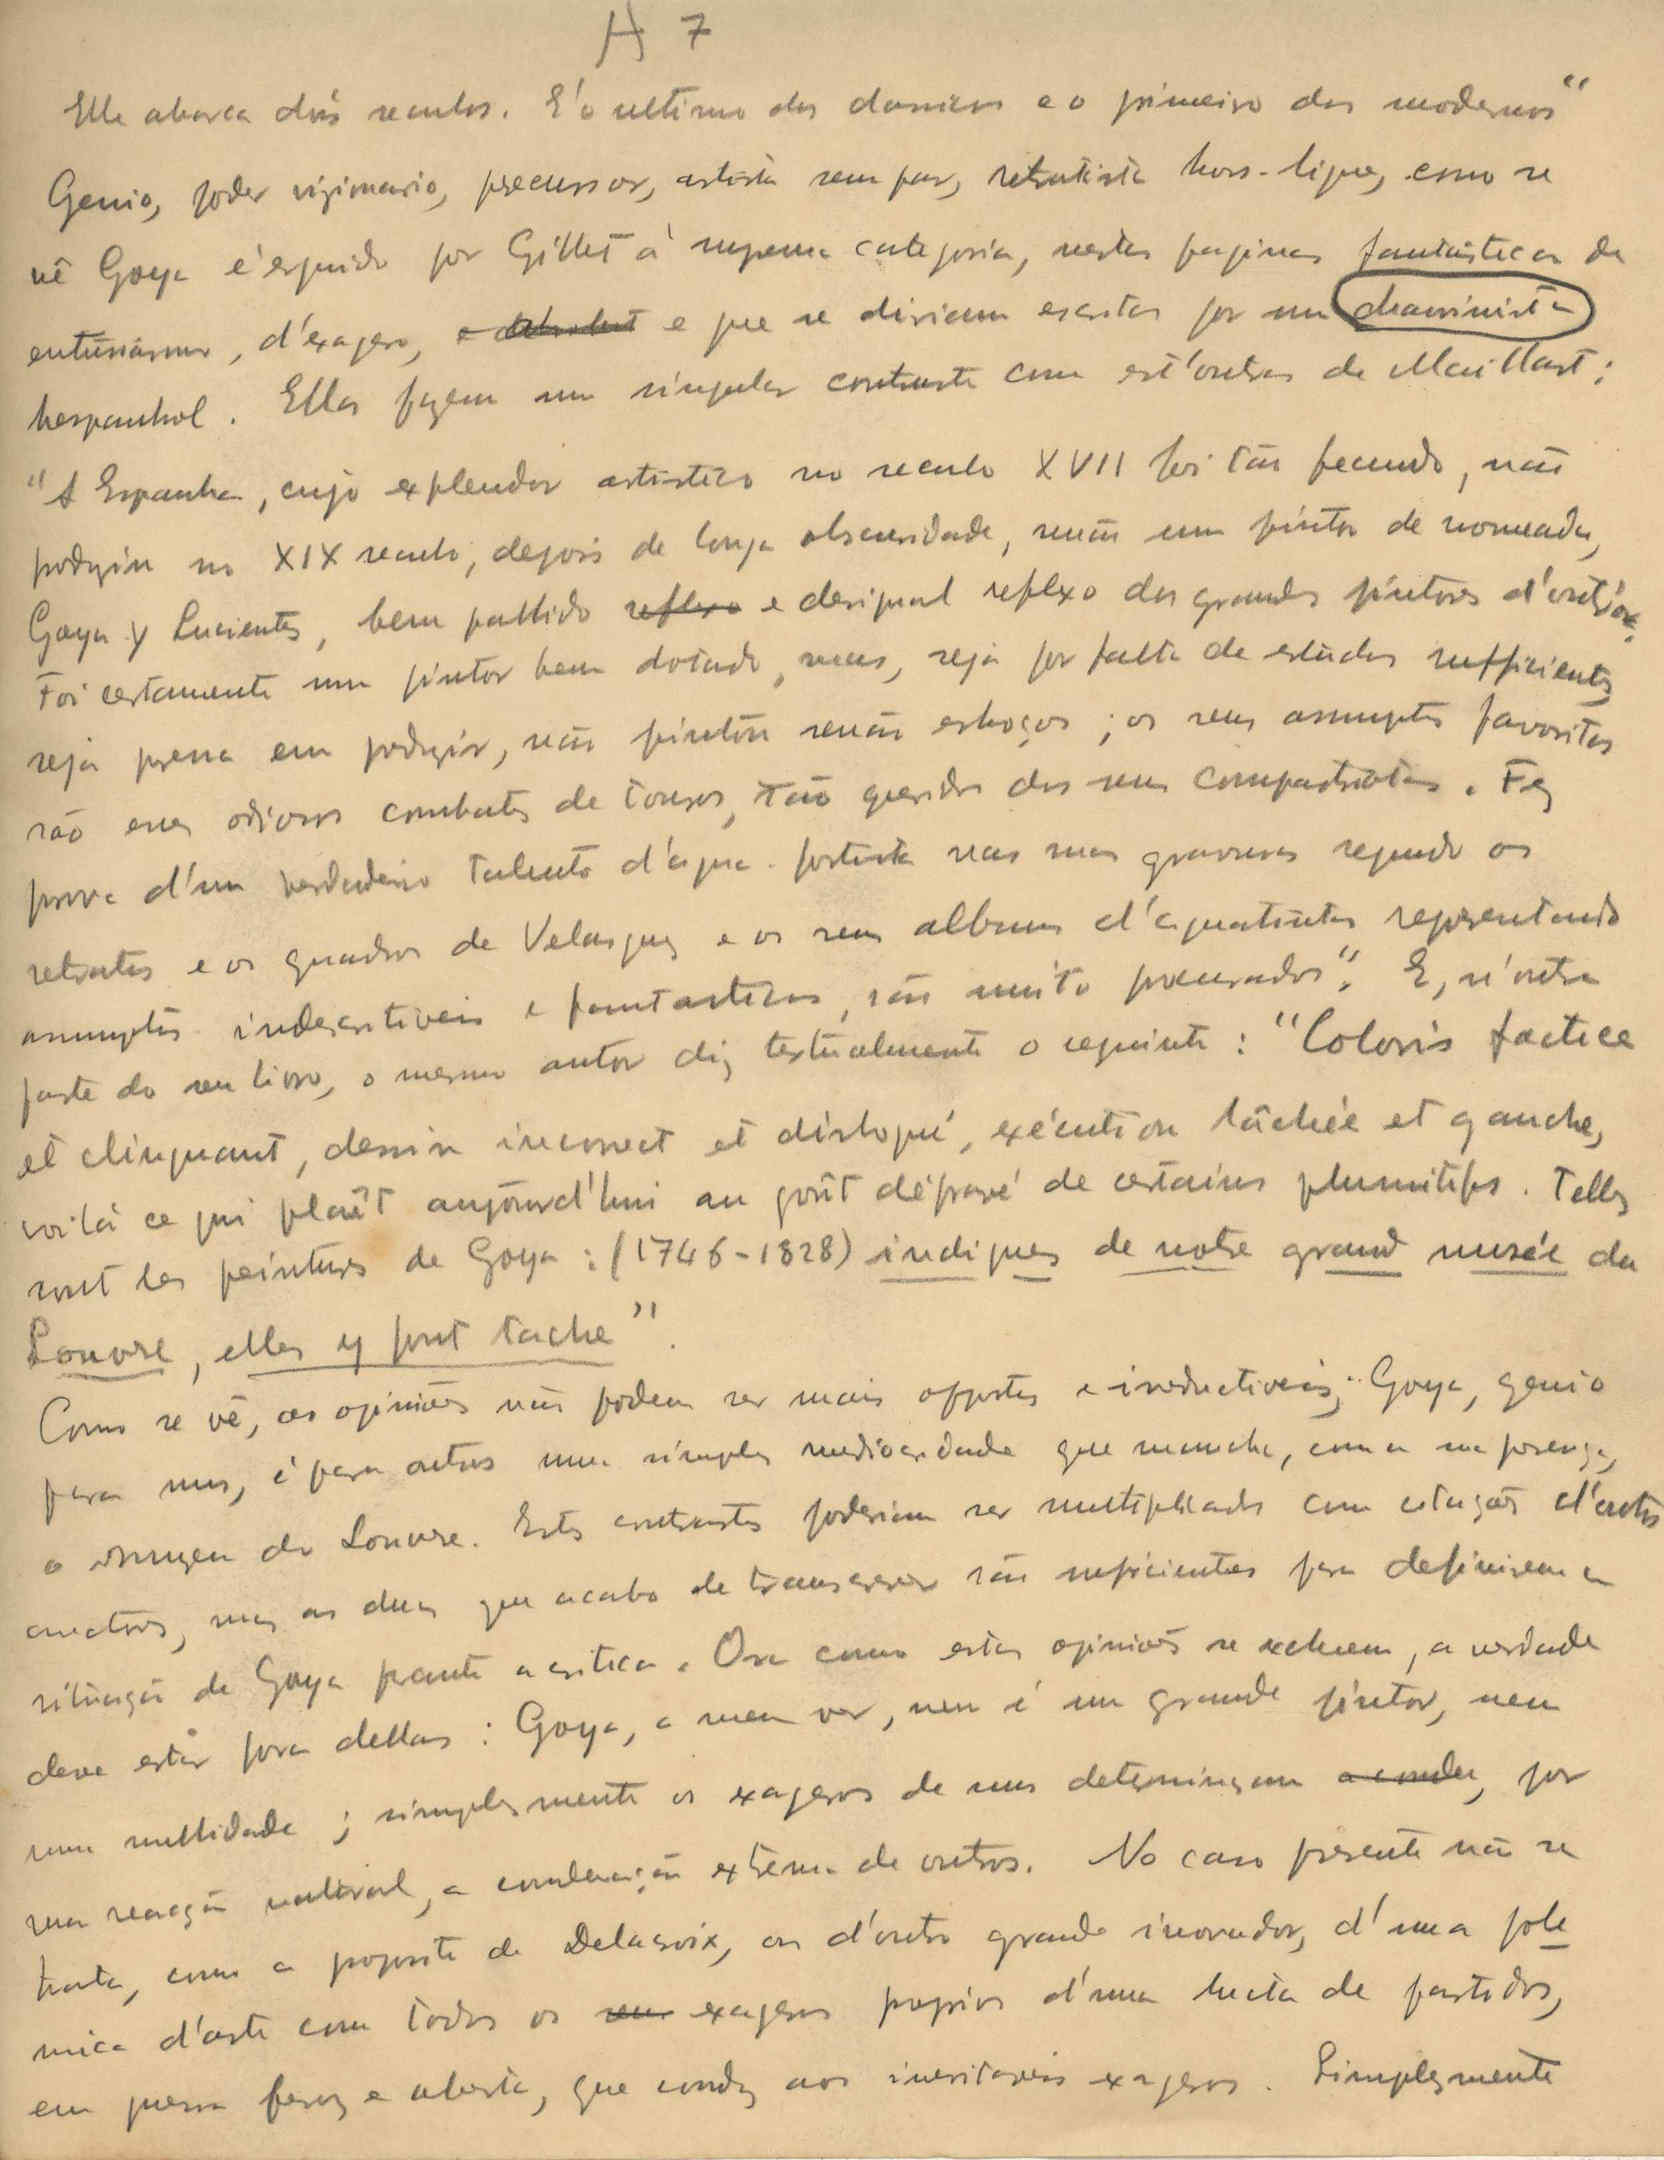 A 7
Elle abarca dois seculos. E' o ultimo dos classicos e o primeiro dos modernos"
Genio, poder visionario, precursor, artista sem par, retratista hors-ligne, como se
vê Goya é erguido por Gillet á suprema categoria, nestas paginas fantásticas de
entusiasmo, d'exagero, e que se diriam escritas por um chauvinista
hespanhol. Ellas fazem um singular contraste com est'outras de Maillart:
"A Espanha, cujo explendor artistico no seculo XVII foi tão fecundo, não
produziu no XIX seculo, depois de longa obscuridade, senão um pintor de nomeada,
Goya y Lucientes, bem pallido reflexo e desigual reflexo dos grandes pintores d'outróra.
Foi certamente um pintor bem dotado, mas, seja por falta de estudos sufficientes
seja pressa em produzir, não pintou senão esboços; os seus assumptos favoritos
são esses odiosos combates de touros, tão queridos dos seus compatriotas. Fez
prova d'um verdadeiro talento d'agua-fortista nas suas gravuras segundo os
retratos e os quadros de Velasquez e os seus albuns d'aquatintas representando
assumptos indescritiveis e fantasticos, são muito procurados". E, n'outra
parte do seu livro, o mesmo autor diz textualmente o seguinte: "Coloris factice
et clinquant, dessin incorrect et disloqué, exécution lâchée et gauche,
voilá ce qui plaît aujourd'hui au goût dépravé de certains plumitifs. Telles
sont les peintures de Goya: (1746-1828) indignes de notre grand musée du
Louvre, elles y font tache".
Como se vê, as opiniões não podem ser mais oppostas e irreductiveis; Goya, genio
para uns, é para outros uma simples mediocridade que mancha, com a sua presença,
o museu do Louvre. Estes contrastes poderiam ser multiplicados com citações d'outros
auctores, mas as duas que acabo de transcrever são suficientes para definirem a
situação de Goya perante a critica. Ora como estas opiniões se excluem, a verdade
deve estar fora dellas: Goya, a meu ver, nem é um grande pintor, nem
uma nullidade; simplesmente os exageros de uns determinaram, por
uma reacção natural, a condenação extrema de outros. No caso presente não se
trata, como a proposito de Delacroix, ou d'outro grande inovador, d'uma polé
mica d'arte com todos os seus exageros proprios d'uma lucta de partidos,
em guerra feroz e aberta, que conduz aos inevitaveis exageros. Simplesmente